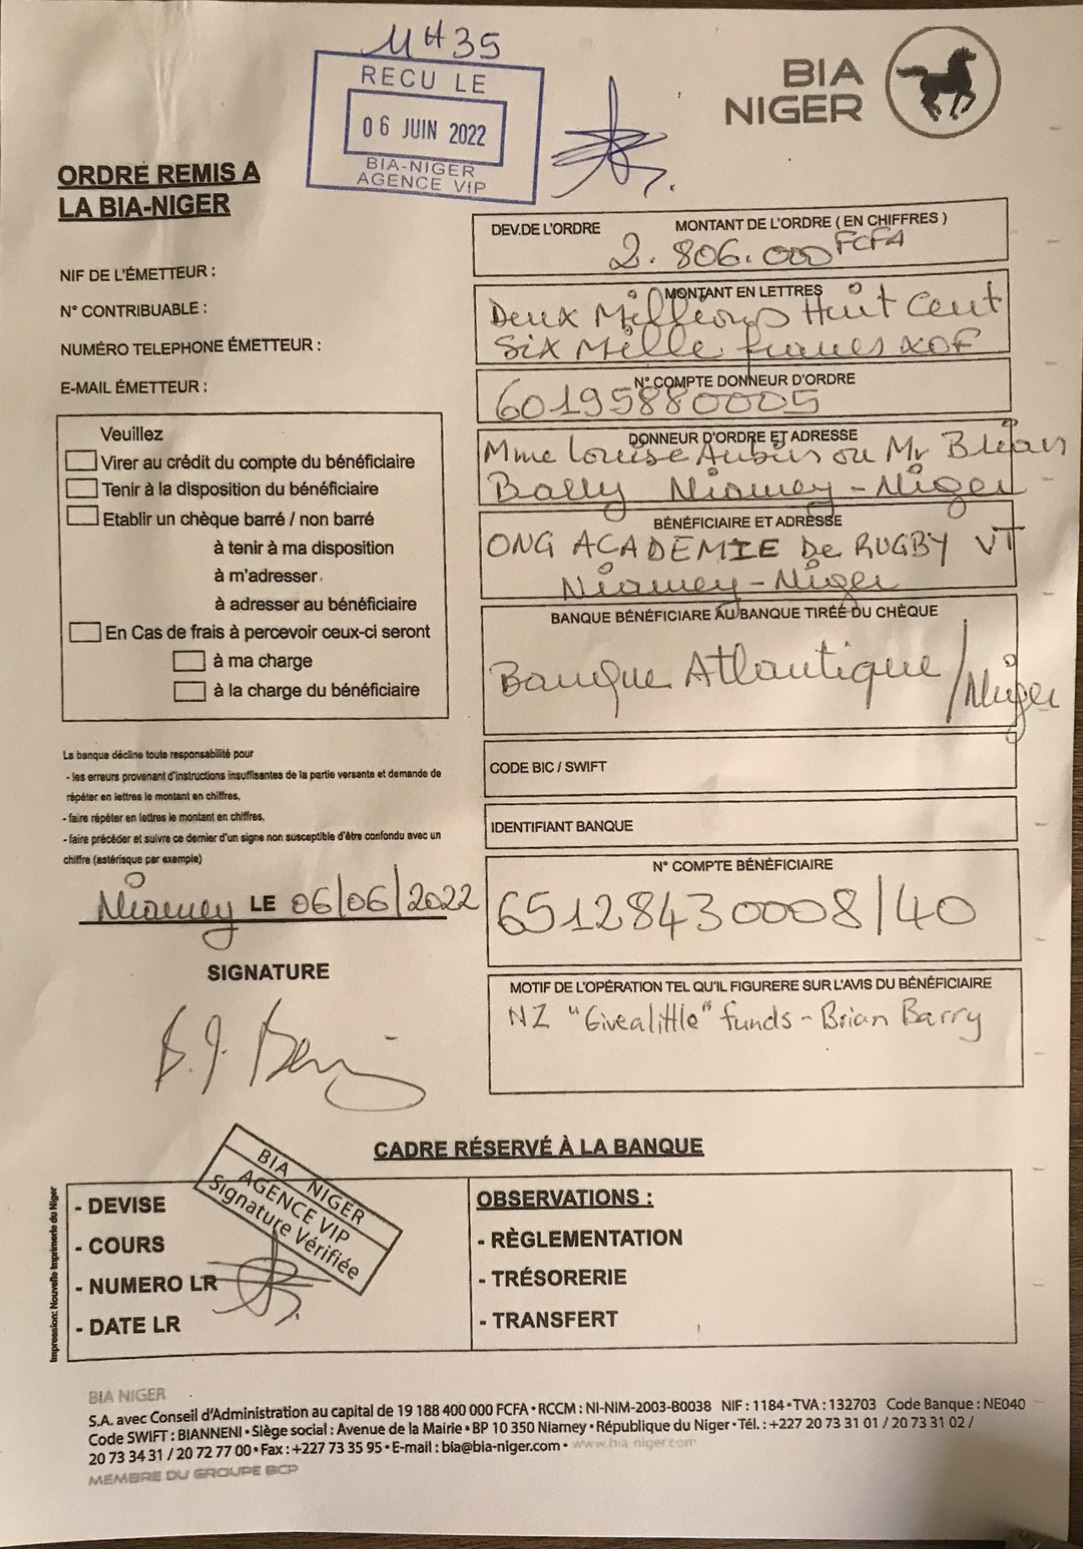 11H35
RECU LE
06 JUIN 2022
BIA-NIGER
AGENCE VIP
BIA
NIGER
ORDRE REMIS A
LA BIA-NIGER
NIF DE L'ÉMETTEUR :
N° CONTRIBUABLE :
NUMÉRO TELEPHONE ÉMETTEUR :
E-MAIL ÉMETTEUR :
Veuillez
Virer au crédit du compte du bénéficiaire
Tenir à la disposition du bénéficiaire
Etablir un chèque barré / non barré
à tenir à ma disposition
à m'adresser.
à adresser au bénéficiaire
En Cas de frais à percevoir ceux-ci seront
à ma charge
à la charge du bénéficiaire
La banque décline toute responsabilité pour
- les erreurs provenant d'instructions insuffisantes de la partie versante et demande de
répéter en lettres le montant en chiffres,
- faire répéter en lettres le montant en chiffres,
- faire précéder et suivre ce dernier d'un signe non susceptible d'être confondu avec un
chiffre (astérisque par exemple)
Niamey LE 06/06/2022
SIGNATURE
DEV.DE L'ORDRE MONTANT DE L'ORDRE ( EN CHIFFRES )
2.806.000 FCFA
MONTANT EN LETTRES
Deux Millions Huit Cent
Six Mille francs XOF
N° COMPTE DONNEUR D'ORDRE
60195880005
DONNEUR D'ORDRE ET ADRESSE
Mme Louise Aubin ou Mr
Niamey - Niger
BÉNÉFICIAIRE ET ADRESSE
ONG ACADEMIE De RUGBY VT
Niamey - Niger
BANQUE BÉNÉFICIARE AU BANQUE TIRÉE DU CHÈQUE
Banque Atlantique / Niger
CODE BIC / SWIFT
IDENTIFIANT BANQUE
N° COMPTE BÉNÉFICIAIRE
65128430008/40
MOTIF DE L'OPÉRATION TEL QU'IL FIGURERE SUR L'AVIS DU BÉNÉFICIAIRE
NZ "Givealittle" funds - Brian Barry
CADRE RÉSERVÉ À LA BANQUE
BIA NIGER
AGENCE VIP
Signature Vérifiée
- DEVISE
- COURS
- NUMERO LR
- DATE LR
OBSERVATIONS :
- RÈGLEMENTATION
- TRÉSORERIE
- TRANSFERT
Impression: Nouvelle Imprimerie du Niger
BIA NIGER
S.A. avec Conseil d'Administration au capital de 19 188 400 000 FCFA • RCCM : NI-NIM-2003-B0038 NIF : 1184 • TVA : 132703 Code Banque : NE040
Code SWIFT : BIANNENI • Siège social : Avenue de la Mairie • BP 10 350 Niamey • République du Niger • Tél. : +227 20 73 31 01 / 20 73 31 02 /
20 73 34 31 / 20 72 77 00 • Fax : +227 73 35 95 • E-mail : bia@bia-niger.com • www.bia-niger.com
MEMBRE DU GROUPE BCP